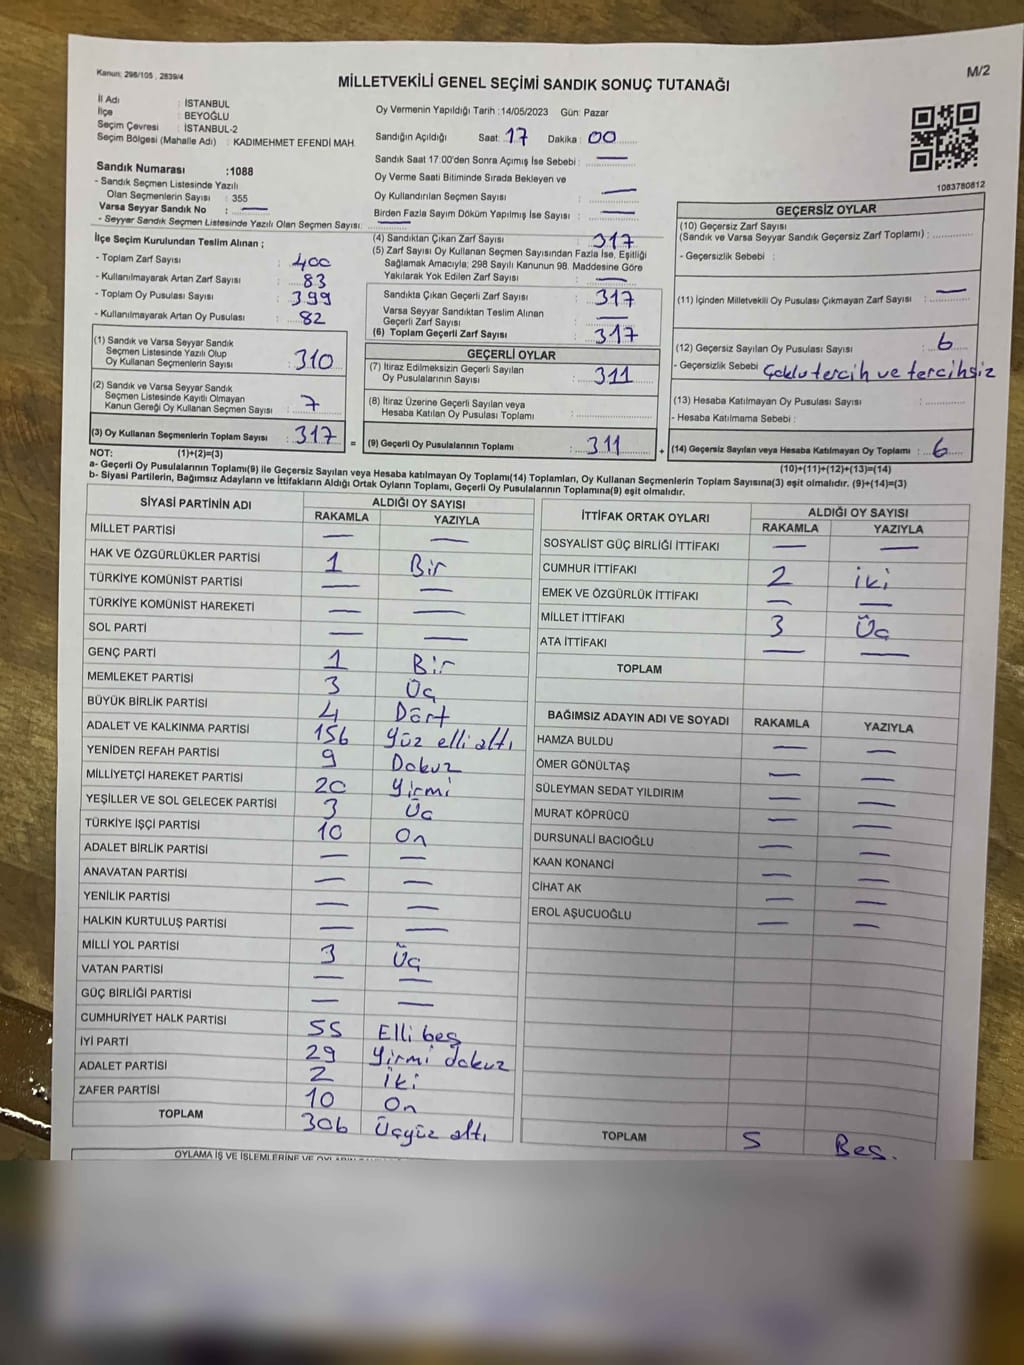 Kanun; 298/105 , 2839/4
M/2
MİLLETVEKİLİ GENEL SEÇİMİ SANDIK SONUÇ TUTANAĞI
İl Adı : İSTANBUL
İlçe : BEYOĞLU
Seçim Çevresi : İSTANBUL-2
Seçim Bölgesi (Mahalle Adı) : KADIMEHMET EFENDİ MAH.
Sandık Numarası :1088
- Sandık Seçmen Listesinde Yazılı
Olan Seçmenlerin Sayısı : 355
Varsa Seyyar Sandık No : —
- Seyyar Sandık Seçmen Listesinde Yazılı Olan Seçmen Sayısı: —
Oy Vermenin Yapıldığı Tarih :14/05/2023 Gün: Pazar
Sandığın Açıldığı Saat: 17 Dakika : 00
Sandık Saat 17:00'den Sonra Açımış İse Sebebi : —
Oy Verme Saati Bitiminde Sırada Bekleyen ve
Oy Kullandırılan Seçmen Sayısı : —
Birden Fazla Sayım Döküm Yapılmış İse Sayısı : —
1083780812
İlçe Seçim Kurulundan Teslim Alınan ;
- Toplam Zarf Sayısı : 400
- Kullanılmayarak Artan Zarf Sayısı : 83
- Toplam Oy Pusulası Sayısı : 399
- Kullanılmayarak Artan Oy Pusulası : 82
(1) Sandık ve Varsa Seyyar Sandık
Seçmen Listesinde Yazılı Olup
Oy Kullanan Seçmenlerin Sayısı : 310
(2) Sandık ve Varsa Seyyar Sandık
Seçmen Listesinde Kayıtlı Olmayan
Kanun Gereği Oy Kullanan Seçmen Sayısı : 7
(3) Oy Kullanan Seçmenlerin Toplam Sayısı : 317
(4) Sandıktan Çıkan Zarf Sayısı : 317
(5) Zarf Sayısı Oy Kullanan Seçmen Sayısından Fazla İse, Eşitliği
Sağlamak Amacıyla; 298 Sayılı Kanunun 98. Maddesine Göre
Yakılarak Yok Edilen Zarf Sayısı : —
Sandıkta Çıkan Geçerli Zarf Sayısı : 317
Varsa Seyyar Sandıktan Teslim Alınan
Geçerli Zarf Sayısı : —
(6) Toplam Geçerli Zarf Sayısı : 317
GEÇERLİ OYLAR
(7) İtiraz Edilmeksizin Geçerli Sayılan
Oy Pusulalarının Sayısı : 311
(8) İtiraz Üzerine Geçerli Sayılan veya
Hesaba Katılan Oy Pusulası Toplamı :
= (9) Geçerli Oy Pusulalarının Toplamı : 311
GEÇERSİZ OYLAR
(10) Geçersiz Zarf Sayısı
(Sandık ve Varsa Seyyar Sandık Geçersiz Zarf Toplamı) :
- Geçersizlik Sebebi :
(11) İçinden Milletvekili Oy Pusulası Çıkmayan Zarf Sayısı : —
(12) Geçersiz Sayılan Oy Pusulası Sayısı : 6
- Geçersizlik Sebebi Çoklu tercih ve tercihsiz
(13) Hesaba Katılmayan Oy Pusulası Sayısı :
- Hesaba Katılmama Sebebi :
+ (14) Geçersiz Sayılan veya Hesaba Katılmayan Oy Toplamı : 6
NOT: (1)+(2)=(3)
(10)+(11)+(12)+(13)=(14)
a- Geçerli Oy Pusulalarının Toplamı(9) ile Geçersiz Sayılan veya Hesaba katılmayan Oy Toplamı(14) Toplamları, Oy Kullanan Seçmenlerin Toplam Sayısına(3) eşit olmalıdır. (9)+(14)=(3)
b- Siyasi Partilerin, Bağımsız Adayların ve İttifakların Aldığı Oy Sayısı Toplamı, Geçerli Oy Pusulalarının Toplamına(9) eşit olmalıdır.
SİYASİ PARTİNİN ADI ALDIĞI OY SAYISI
RAKAMLA YAZIYLA
MİLLET PARTİSİ — —
HAK VE ÖZGÜRLÜKLER PARTİSİ 1 Bir
TÜRKİYE KOMÜNİST PARTİSİ — —
TÜRKİYE KOMÜNİST HAREKETİ — —
SOL PARTİ — —
GENÇ PARTİ 1 Bir
MEMLEKET PARTİSİ 3 Üç
BÜYÜK BİRLİK PARTİSİ 4 Dört
ADALET VE KALKINMA PARTİSİ 156 Yüz elli altı
YENİDEN REFAH PARTİSİ 9 Dokuz
MİLLİYETÇİ HAREKET PARTİSİ 20 Yirmi
YEŞİLLER VE SOL GELECEK PARTİSİ 3 Üç
TÜRKİYE İŞÇİ PARTİSİ 10 On
ADALET BİRLİK PARTİSİ — —
ANAVATAN PARTİSİ — —
YENİLİK PARTİSİ — —
HALKIN KURTULUŞ PARTİSİ — —
MİLLİ YOL PARTİSİ 3 Üç
VATAN PARTİSİ — —
GÜÇ BİRLİĞİ PARTİSİ — —
CUMHURİYET HALK PARTİSİ 55 Elli beş
İYİ PARTİ 29 Yirmi dokuz
ADALET PARTİSİ 2 İki
ZAFER PARTİSİ 10 On
TOPLAM 306 Üçyüz altı
İTTİFAK ORTAK OYLARI ALDIĞI OY SAYISI
RAKAMLA YAZIYLA
SOSYALİST GÜÇ BİRLİĞİ İTTİFAKI — —
CUMHUR İTTİFAKI 2 iki
EMEK VE ÖZGÜRLÜK İTTİFAKI — —
MİLLET İTTİFAKI 3 Üç
ATA İTTİFAKI — —
TOPLAM
BAĞIMSIZ ADAYIN ADI VE SOYADI RAKAMLA YAZIYLA
HAMZA BULDU — —
ÖMER GÖNÜLTAŞ — —
SÜLEYMAN SEDAT YILDIRIM — —
MURAT KÖPRÜCÜ — —
DURSUNALİ BACIOĞLU — —
KAAN KONANCİ — —
CİHAT AK — —
EROL AŞUCUOĞLU — —
TOPLAM 5 Beş.
OYLAMA İŞ VE İŞLEMLERİNE VE